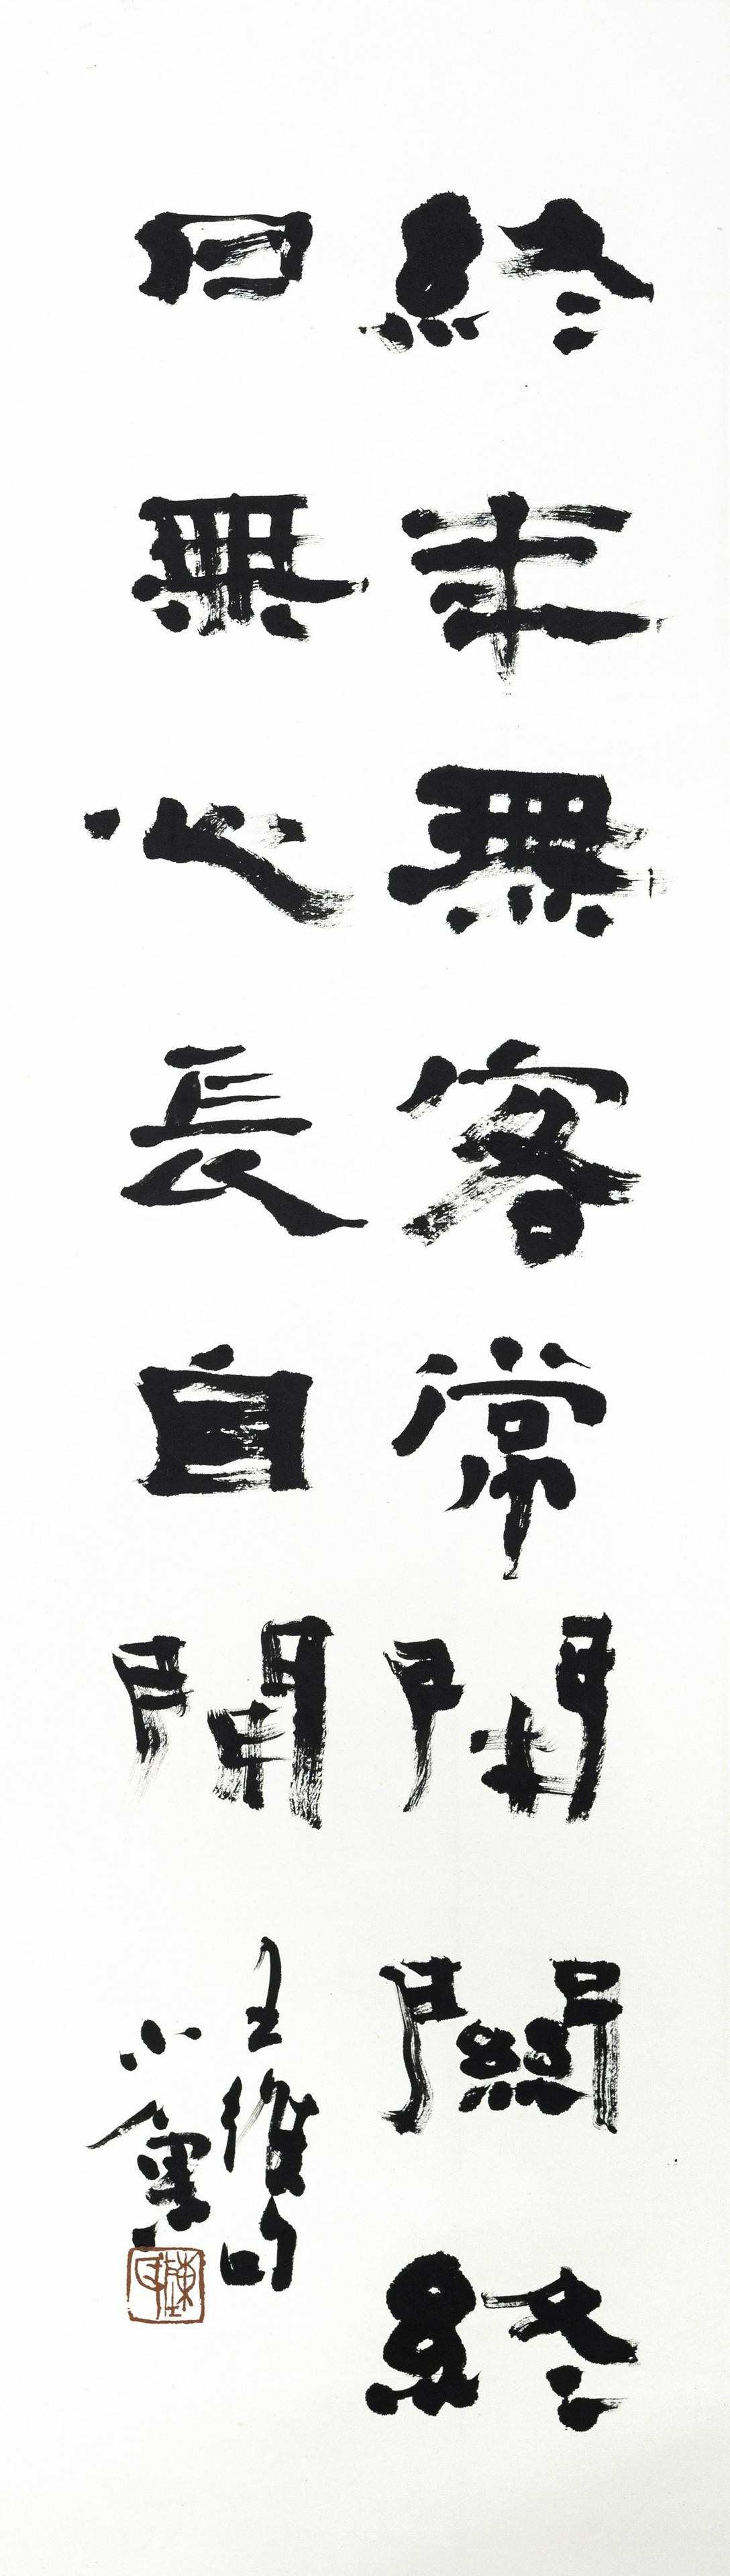 終年無客常閉關終
日無心長自閒
王維句
小魚